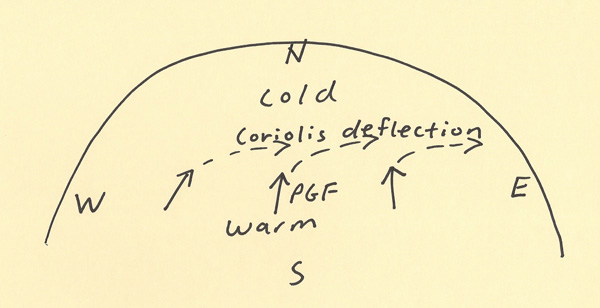 N
cold
coriolis deflection
W
PGF
E
warm
S